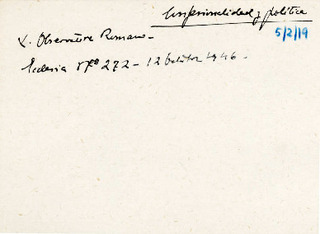 y política
5/2/19
L. Observatore Romano -
Ecclesia nº 272 - 12 Octubre 1946 -